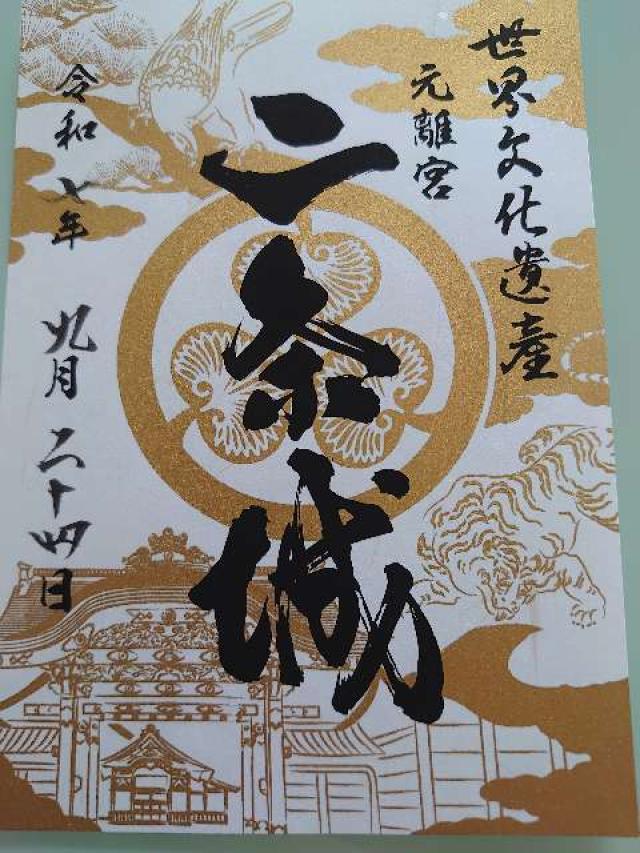 世界文化遺産
元離宮
二条城
令和七年
九月二十四日